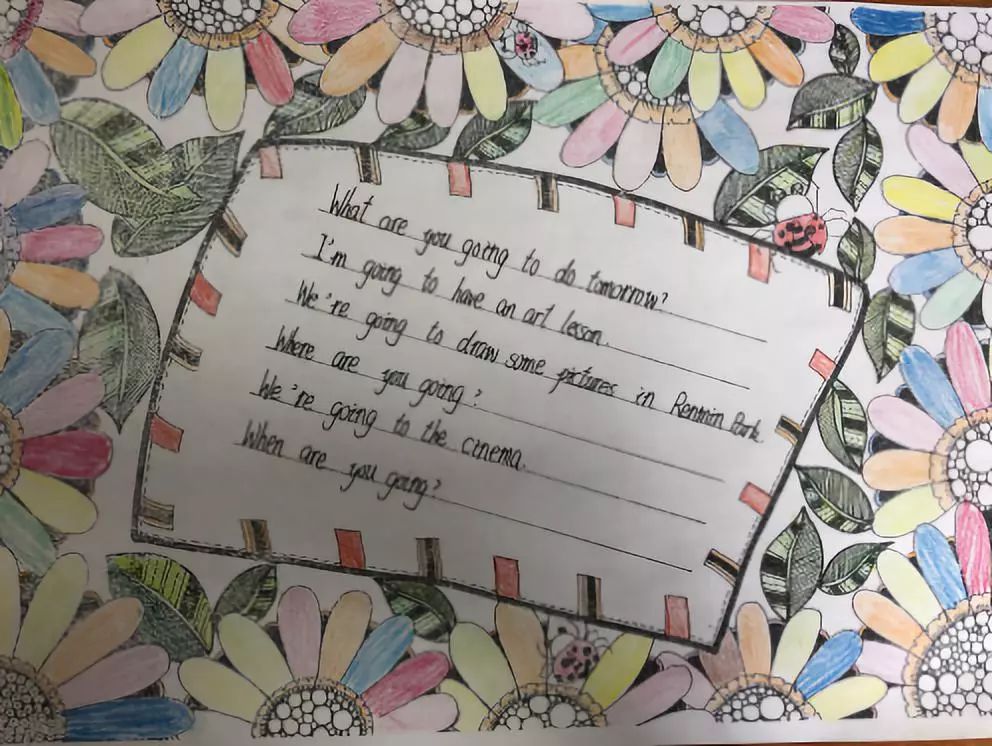 What are you going to do tomorrow?
I'm going to have an art lesson.
We're going to draw some pictures in Renmin Park.
Where are you going?
We're going to the cinema.
When are you going?